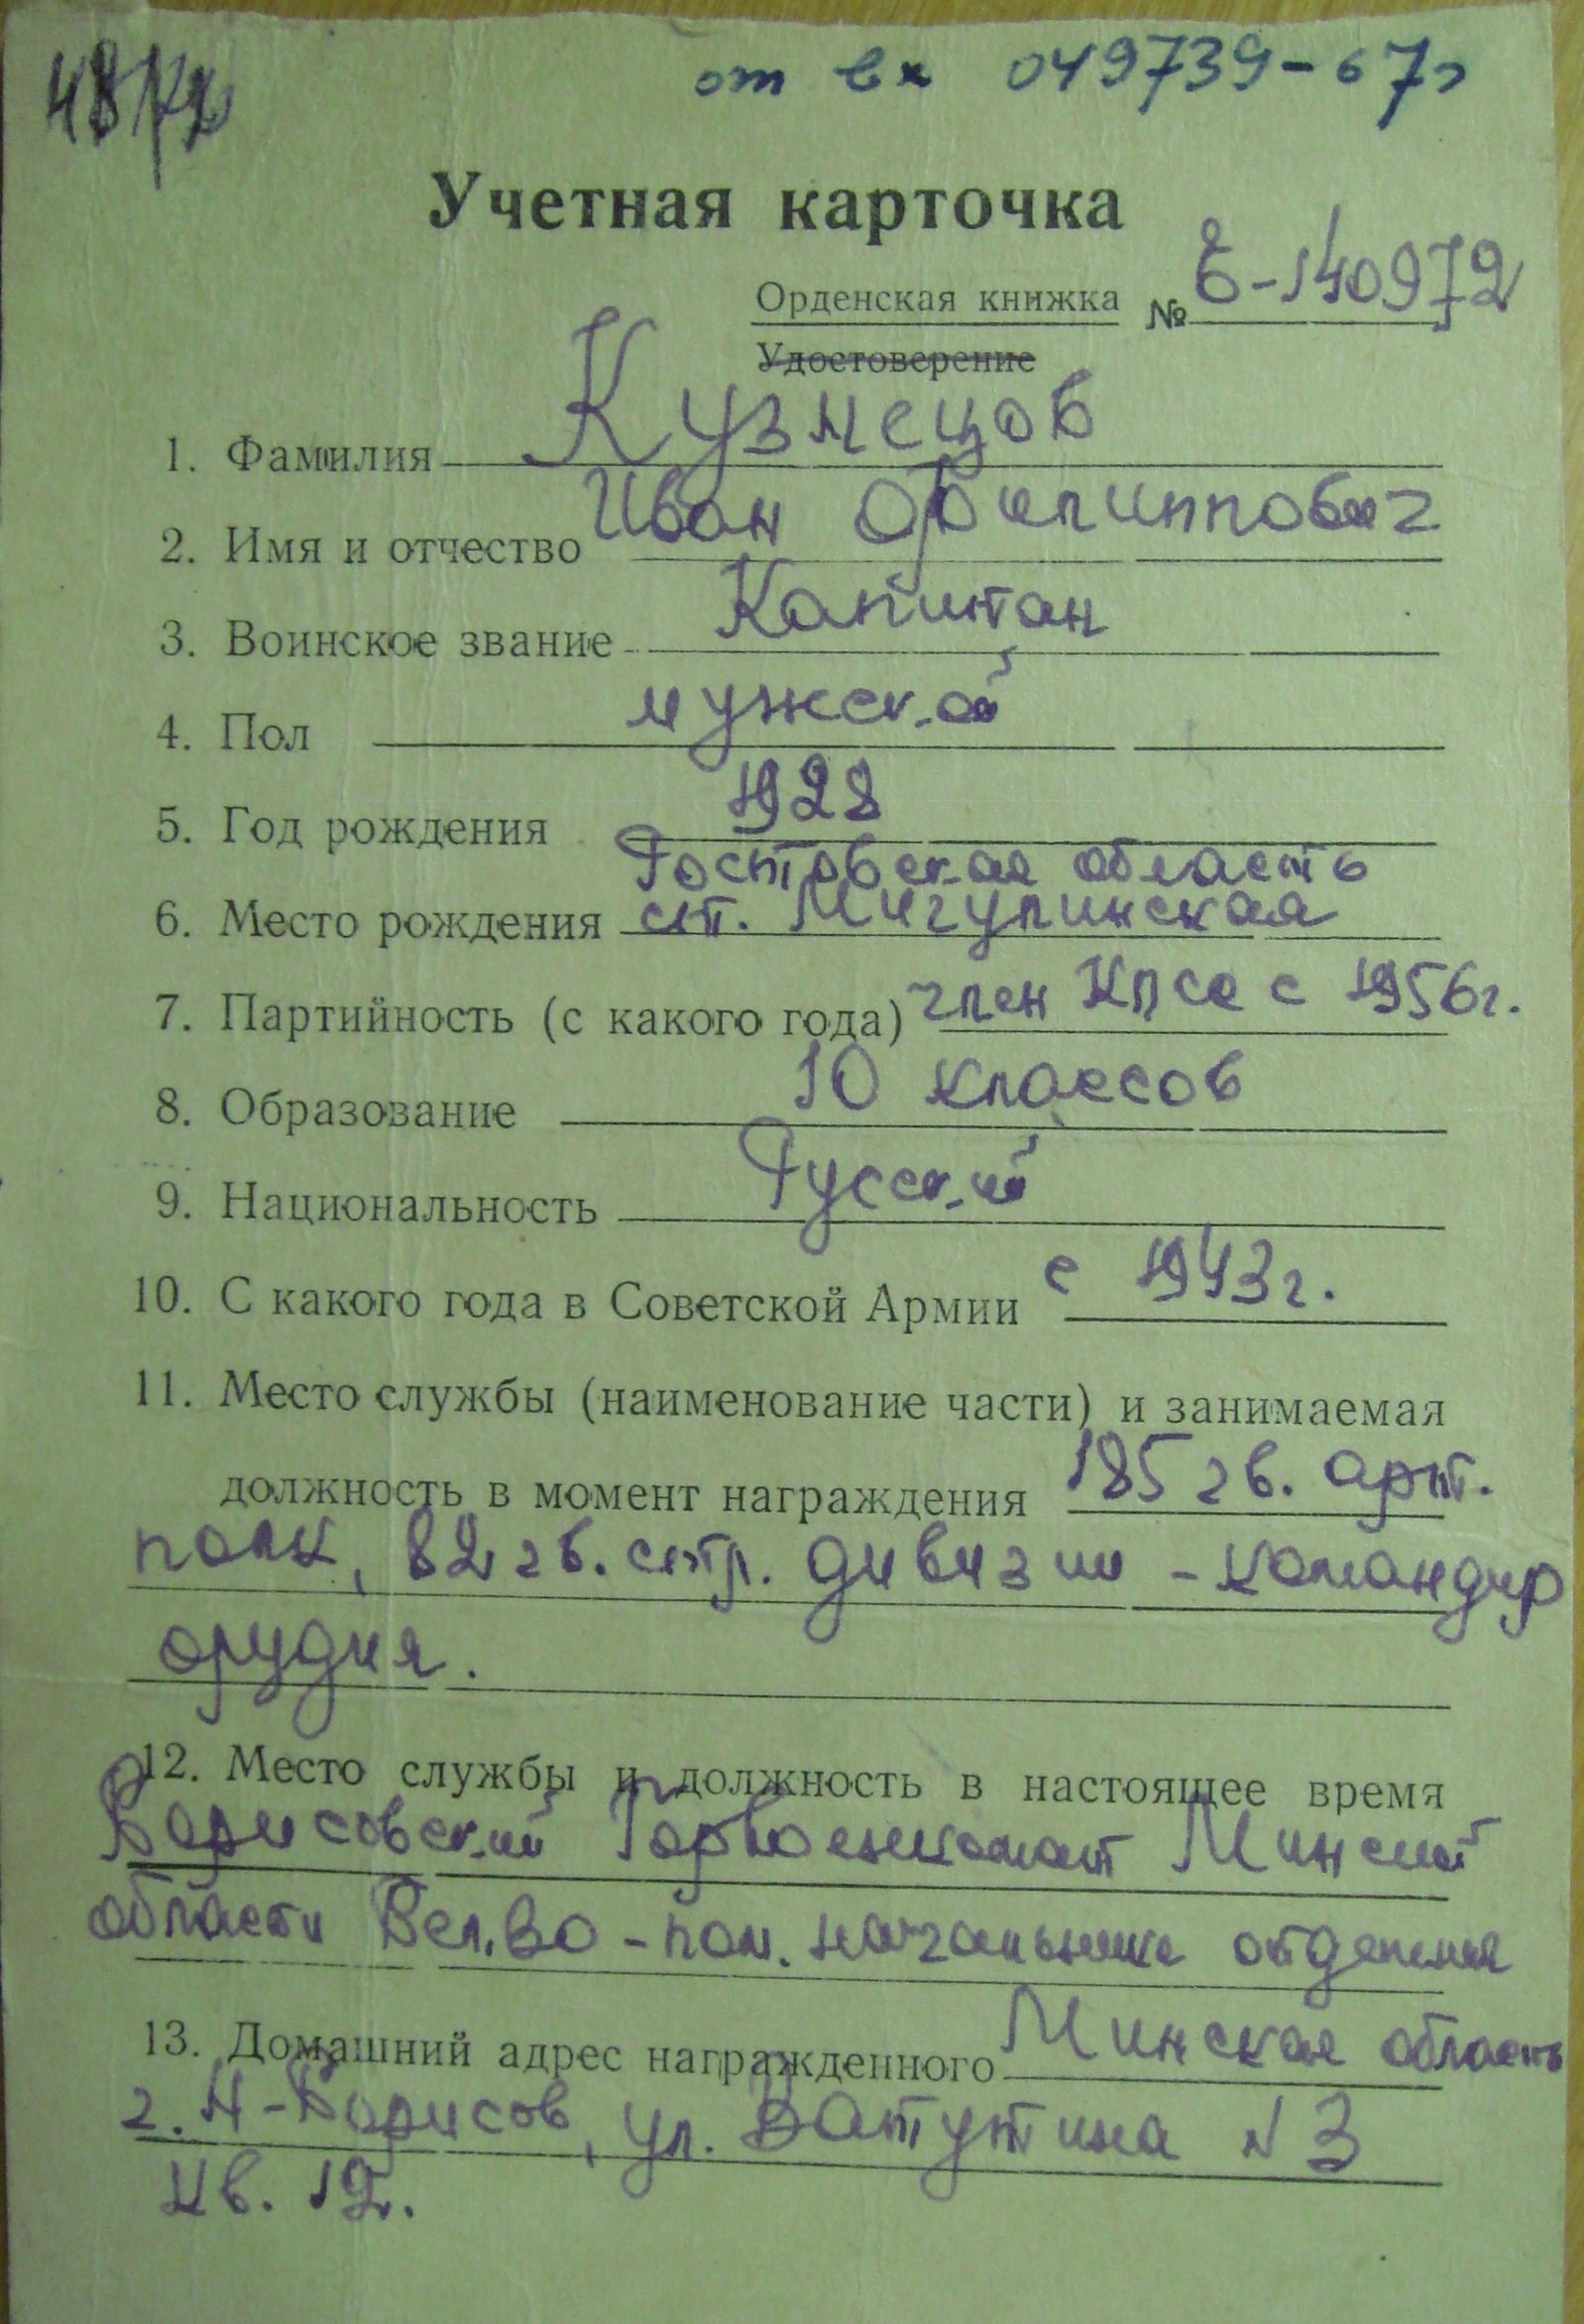 от вх 049739-67г
Учетная карточка
Орденская книжка № Е-140972
Удостоверение
1. Фамилия Кузнецов
2. Имя и отчество Иван Филиппович
3. Воинское звание Капитан
4. Пол мужской
5. Год рождения 1928
Ростовская область
6. Место рождения ст. Мигулинская
7. Партийность (с какого года) член КПСС с 1956г.
8. Образование 10 классов
9. Национальность Русский
10. С какого года в Советской Армии с 1943г.
11. Место службы (наименование части) и занимаемая
должность в момент награждения 185 гв. арт.
полк, 82 гв. стр. дивизии - командир
орудия.
12. Место службы и должность в настоящее время
Борисовский Горвоенкомат Минской
области Бел.ВО - пом. начальника отделения
13. Домашний адрес награжденного Минская область
г. Н-Борисов, ул. Ватутина N 3
кв. 12.